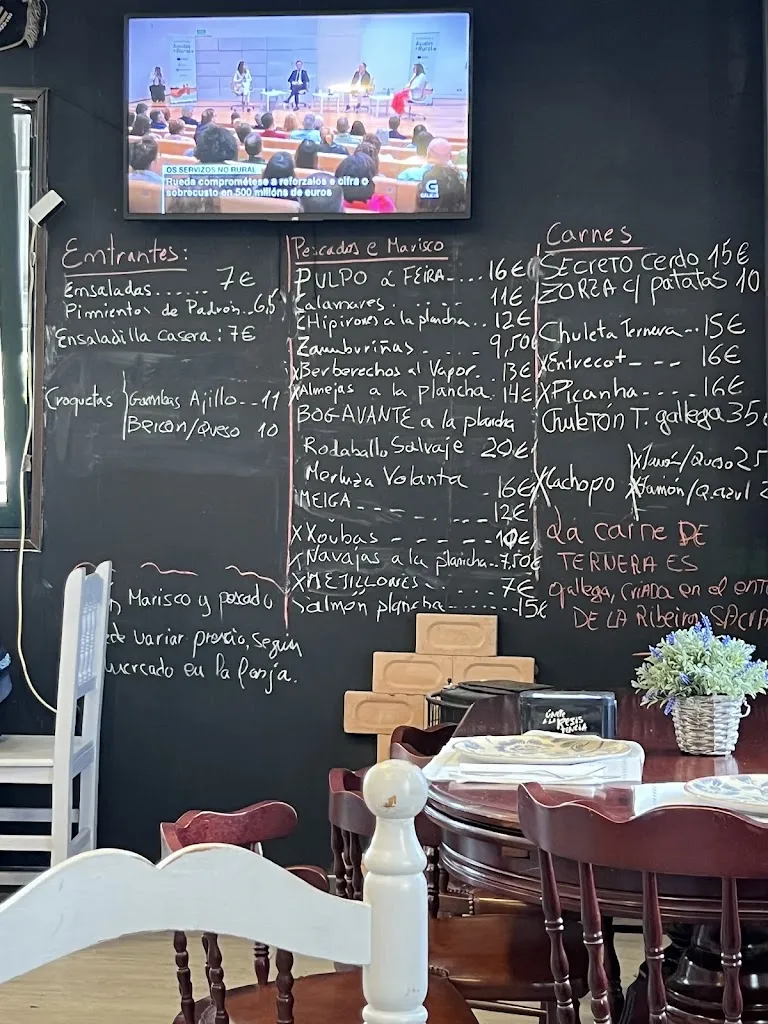 OS SERVIZOS NO RURAL
Rueda comprométese a reforzalos e cifra o
sobrecusto en 500 millóns de euros
G
GALICIA
Entrantes:
Ensaladas...... 7€
Pimientos de Padrón..6,5
Ensaladilla casera: 7€
Croquetas
Gambas Ajillo.. 11
Beicon/Queso 10
Marisco y pescado
variar precio, según
mercado en la lonja.
Pescados e Marisco
PULPO á FEIRA.... 16€
Calamares...... 11€
CHipirones a la plancha.. 12€
Zamburiñas - - - - 9,50€
XBerberechos al Vapor. 13€
XAlmejas a la plancha. 14€
BOGAVANTE a la plancha
Rodaballo Salvaje 20€
Merluza Volanta - 16€
MEIGA - - - - - - - 12€
XXoubas - - - - - 10€
XNavajas a la plancha..7,50€
XMEJILLONES - - - - 7€
Salmón plancha - - - - - 15€
Carnes
SECRETO Cerdo 15€
ZORZA c/ patatas 10
Chuleta Ternera.. 15€
XEntrecot - - - 16€
XPicanha - - - - 16€
CHuleTÓN T. gallega 35
XCachopo
XJamón/Queso 25
XJamón/Q.azul
LA CARNE DE
TERNERA ES
gallega, CRIADA en el
DE LA Ribeira SACRA